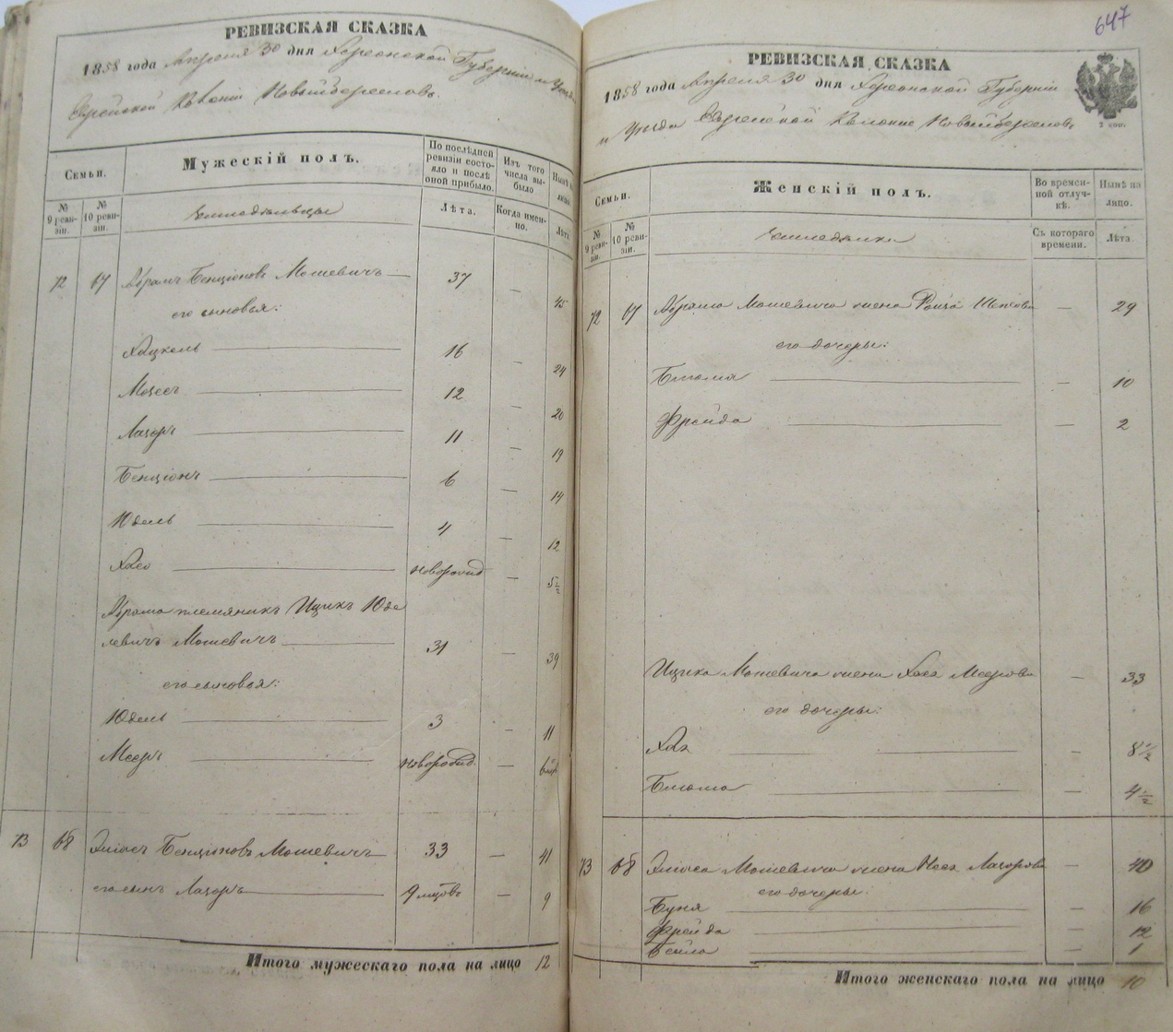 РЕВИЗСКАЯ СКАЗКА
1858 года Апреля 30 дня Херсонской Губернии и Уезда
Еврейской Колонии Новый Береслов.
Семьи.
Мужескій полъ.
По послѣдней ревизіи состояло и послѣ оной прибыло.
Изъ того числа выбыло
Нынѣ на лицо
№ 9 ревизіи.
№ 10 ревизіи.
Земледѣльцы
Лѣта.
Когда именно.
Лѣта
72 67 Абрамъ Бенціоновъ Мошевичъ 37 — 45
его сыновья:
Хацкель 16 — 24
Мовсей 12 — 20
Лазарь 11 — 19
Бенціонъ 6 — 14
Юдель 4 — 12
новорожд — 5½
Абрама племянник Ицикъ Юде
левичъ Мошевичъ 31 — 39
его сыновья:
Юдель 3 — 11
Мееръ новорожд. —
73 68 Эліасъ Бенціоновъ Мошевичъ 33 — 41
его сынъ Лазарь 9 мцовъ — 9
Итого мужескаго пола на лицо 12
647
РЕВИЗСКАЯ СКАЗКА
1858 года Апреля 30 дня Херсонской Губернии
и Уезда Еврейской Колонии Новый Береслов.
Семьи.
Женскій полъ.
Во временной отлучкѣ.
Нынѣ на лицо.
№ 9 ревизіи.
№ 10 ревизіи.
Земледѣлки
Съ котораго времени.
Лѣта
72 67 Абрама Мошевича жена Ройза — 29
его дочери:
Блюма — 10
Фрейда — 2
Ицика Мошевича жена Хая Меерова — 33
его дочери:
Хая — 8½
Блюма — 4½
73 68 Эліаса Мошевича жена Неха Лазорова — 40
его дочери:
Буня — 16
Фрейда — 12
Бейла — 1
Итого женскаго пола на лицо 10